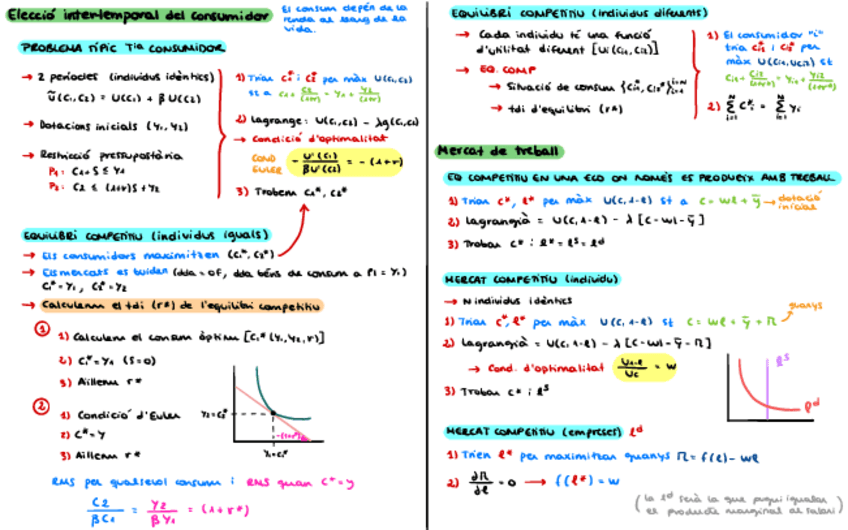 Elecció intertemporal del consumidor
El consum depèn de la
renda al llarg de la
vida.
PROBLEMA TÍPIC Tia CONSUMIDOR
→ 2 períodes (individus idèntics)
Ũ(C1,C2) = U(C1) + βU(C2)
→ Dotacions inicials (Y1,Y2)
→ Restricció pressupostària
P1: C1+S ≤ Y1
P2: C2 ≤ (1+r)S+Y2
1) Triar C1* i C2* per màx U(C1,C2)
st a C1+ C2/(1+r) = Y1 + Y2/(1+r)
2) Lagrange: U(C1,C2) - λg(C1,C2)
→ Condició d'optimalitat
COND EULER - U'(C1)/βU'(C2) = -(1+r)
3) Trobem C1*, C2*
EQUILIBRI COMPETITIU (individus iguals)
→ Els consumidors maximitzen (C1*, C2*)
→ Els mercats es buiden (dda = of, dda béns de consum a P1 = Y1)
C1* = Y1, C2* = Y2
→ Calculem el tdi (r*) de l'equilibri competitiu
①
1) Calculem el consum òptim [C1*(Y1,Y2,r)]
2) C1* = Y1 (S=0)
3) Aïllem r*
②
1) Condició d'Euler
2) C* = Y
3) Aïllem r*
Y2=C2*
-(1+r*)
Y1=C1*
RMS per qualsevol consum i RMS quan C* = Y
C2/βC1 = Y2/βY1 = (1+r*)
EQUILIBRI COMPETITIU (individus diferents)
→ Cada individu té una funció
d'utilitat diferent [Ui(Ci1,Ci2)]
→ EQ. COMP
→ Situació de consum {Ci1*, Ci2*} i=1 i=N
→ tdi d'equilibri (r*)
1) El consumidor "i"
tria Ci1* i Ci2* per
màx U(Ci1,Ci2) st
Ci1+ Ci2/(1+r*) = Yi1+ Yi2/(1+r*)
2) Σ C*i = Σ Yi
Mercat de treball
EQ COMPETITIU EN UNA ECO ON NOMÉS ES PRODUEIX AMB TREBALL
1) Triar C*, ℓ* per màx U(C,1-ℓ) st a C = Wℓ + ȳ → dotació
inicial
2) Lagrangià = U(C,1-ℓ) - λ [C-Wℓ-ȳ]
3) Trobar C* i ℓ* = ℓs = ℓd
MERCAT COMPETITIU (individu)
→ N individus idèntics
1) Triar C*, ℓ* per màx U(C,1-ℓ) st C = Wℓ + ȳ + Π
guanys
2) Lagrangià = U(C,1-ℓ) - λ [C-Wℓ-ȳ-Π]
→ Cond. d'optimalitat U1-ℓ/Uc = W
3) Trobar C* i ℓs
ℓs
ℓd
MERCAT COMPETITIU (empreses) ℓd
1) Trien ℓ* per maximitzar guanys Π = f(ℓ) - wℓ
2) ∂Π/∂ℓ = 0 → f(ℓ*) = W
(la ℓd serà la que pugui igualar
el producte marginal al salari)